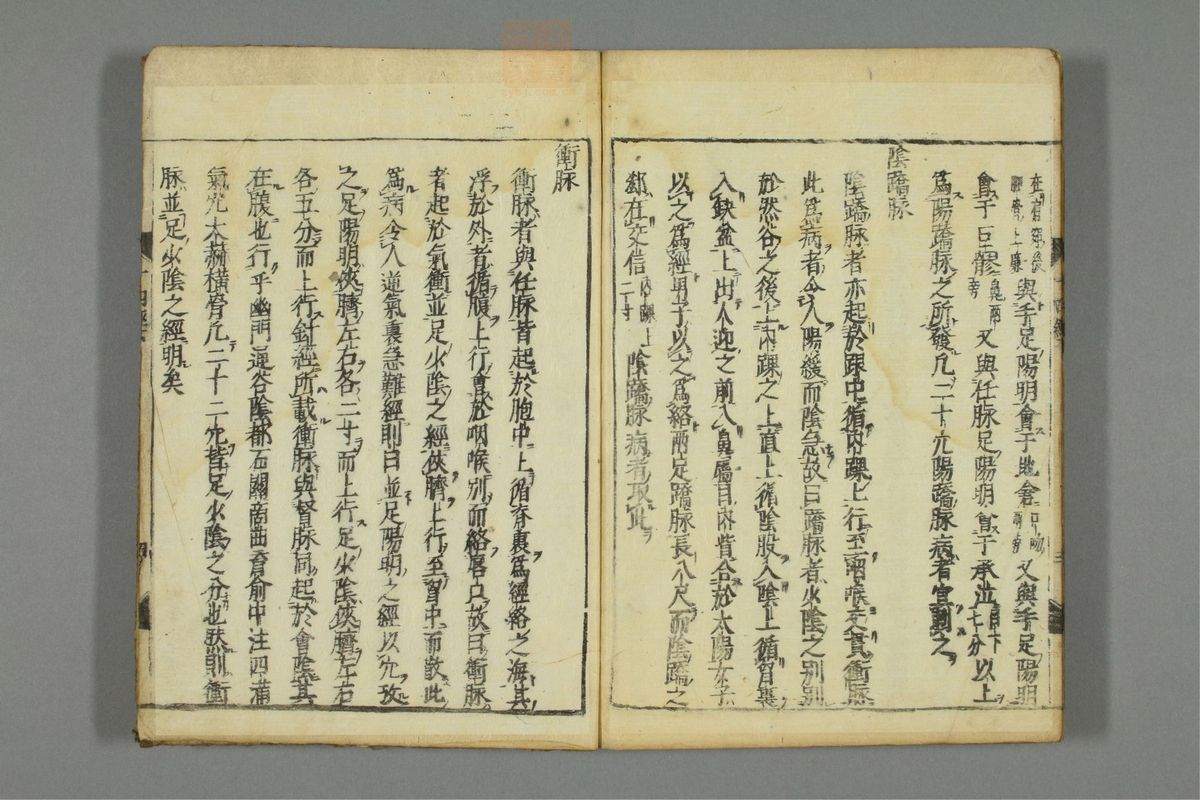 在肩端後
膊骨上廉與手足陽明會于地倉口吻兩旁又與手足陽明
會于巨髎鼻兩旁又與任脉足陽明會于承泣目下七分以上
為陽蹻脉之所發凡二十穴陽蹻脉病者宜刺之
陰蹻脉
陰蹻脉者亦起於跟中循內踝上行至咽喉交貫衝脉
此為病者令人陽緩而陰急故曰蹻脉者少陰之別別
於然谷之後上內踝之上直上循陰股入陰上循胷裏
入缺盆上出人迎之前入鼻屬目內眥合於太陽女子
以之為經男子以之為絡兩足蹻脉長八尺而陰蹻之
郄在交信內踝上二寸陰蹻脉病者取此
衝脉
衝脉者與任脉皆起於胞中上循脊裏為經絡之海其
浮於外者循腹上行會於咽喉別而絡唇口故曰衝脉
者起於氣衝並足少陰之經俠臍上行至胷中而散此
為病令人逆氣裏急難經則曰並足陽明之經以穴攷
之足陽明俠臍左右各二寸而上行足少陰俠臍左右
各五分而上行針經所載衝脉與督脉同起於會陰其
在腹也行乎幽門通谷陰都石關商曲肓俞中注四滿
氣穴大赫橫骨凡二十二穴皆足少陰之分也然則衝
脉並足少陰之經明矣